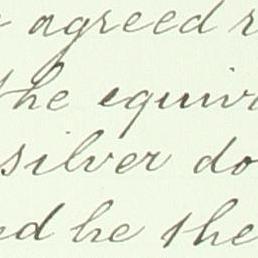 agreed r
the equiv
silver do
ed he the